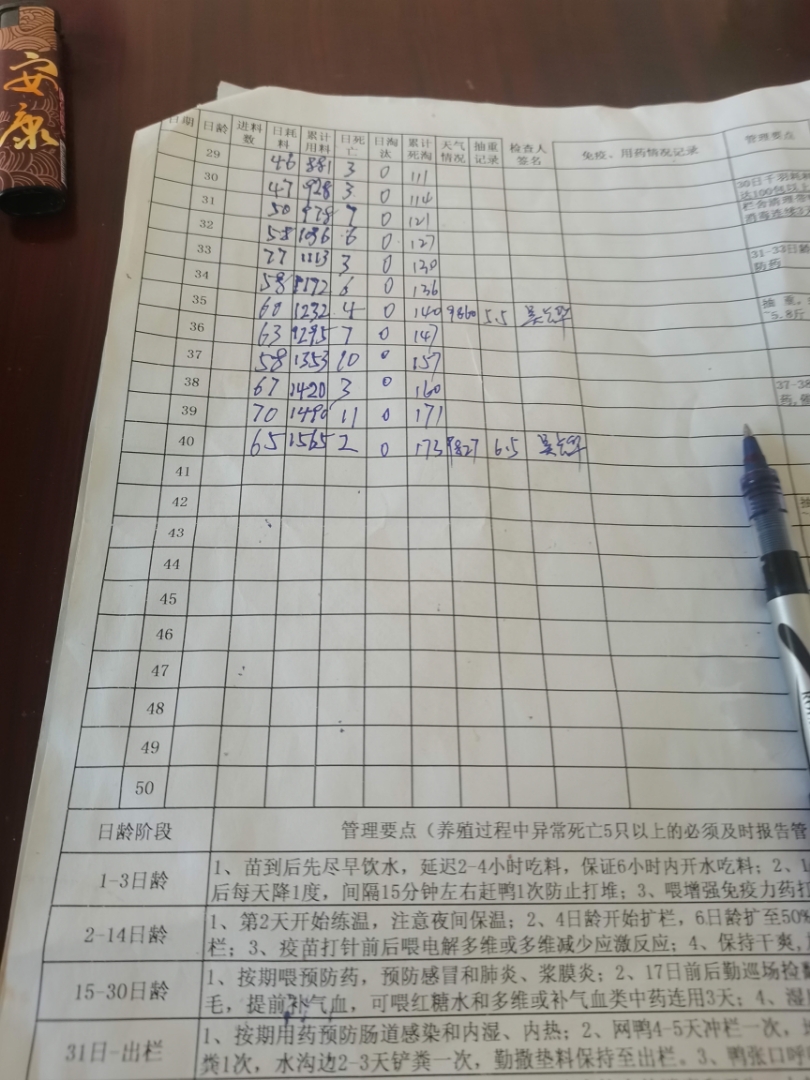 安康
日期 日龄 进料数 日耗料 累计用料 日死亡 日淘汰 累计死淘 天气情况 抽重记录 检查人签名 免疫、用药情况记录 管理要点
29 46 881 3 0 111
30 47 928 3 0 114
31 50 978 7 0 121
32 58 1036 6 0 127
33 77 1113 3 0 130
34 58 1172 6 0 136
35 60 1232 4 0 140 9860 5.5
36 63 1295 7 0 147
37 58 1353 10 0 157
38 67 1420 3 0 160
39 70 1490 11 0 171
40 65 1565 2 0 173 9827 6.5
41
42
43
44
45
46
47
48
49
50
30日千羽耗料
达100包以上
栏舍清理带
消毒连续3天
31-33日龄
防药
抽重,
~5.8斤
37-38
药,催
日龄阶段 管理要点(养殖过程中异常死亡5只以上的必须及时报告管
1-3日龄 1、苗到后先尽早饮水,延迟2-4小时吃料,保证6小时内开水吃料;2、1
后每天降1度,间隔15分钟左右赶鸭1次防止打堆;3、喂增强免疫力药打
2-14日龄 1、第2天开始练温,注意夜间保温;2、4日龄开始扩栏,6日龄扩至50%
栏;3、疫苗打针前后喂电解多维或多维减少应激反应;4、保持干爽,
15-30日龄 1、按期喂预防药,预防感冒和肺炎、浆膜炎;2、17日前后勤巡场捡
毛,提前补气血,可喂红糖水和多维或补气血类中药连用3天;4、湿
31日-出栏 1、按期用药预防肠道感染和内湿、内热;2、网鸭4-5天冲栏一次,
粪1次,水沟边2-3天铲粪一次,勤撒垫料保持至出栏。3、鸭张口呼